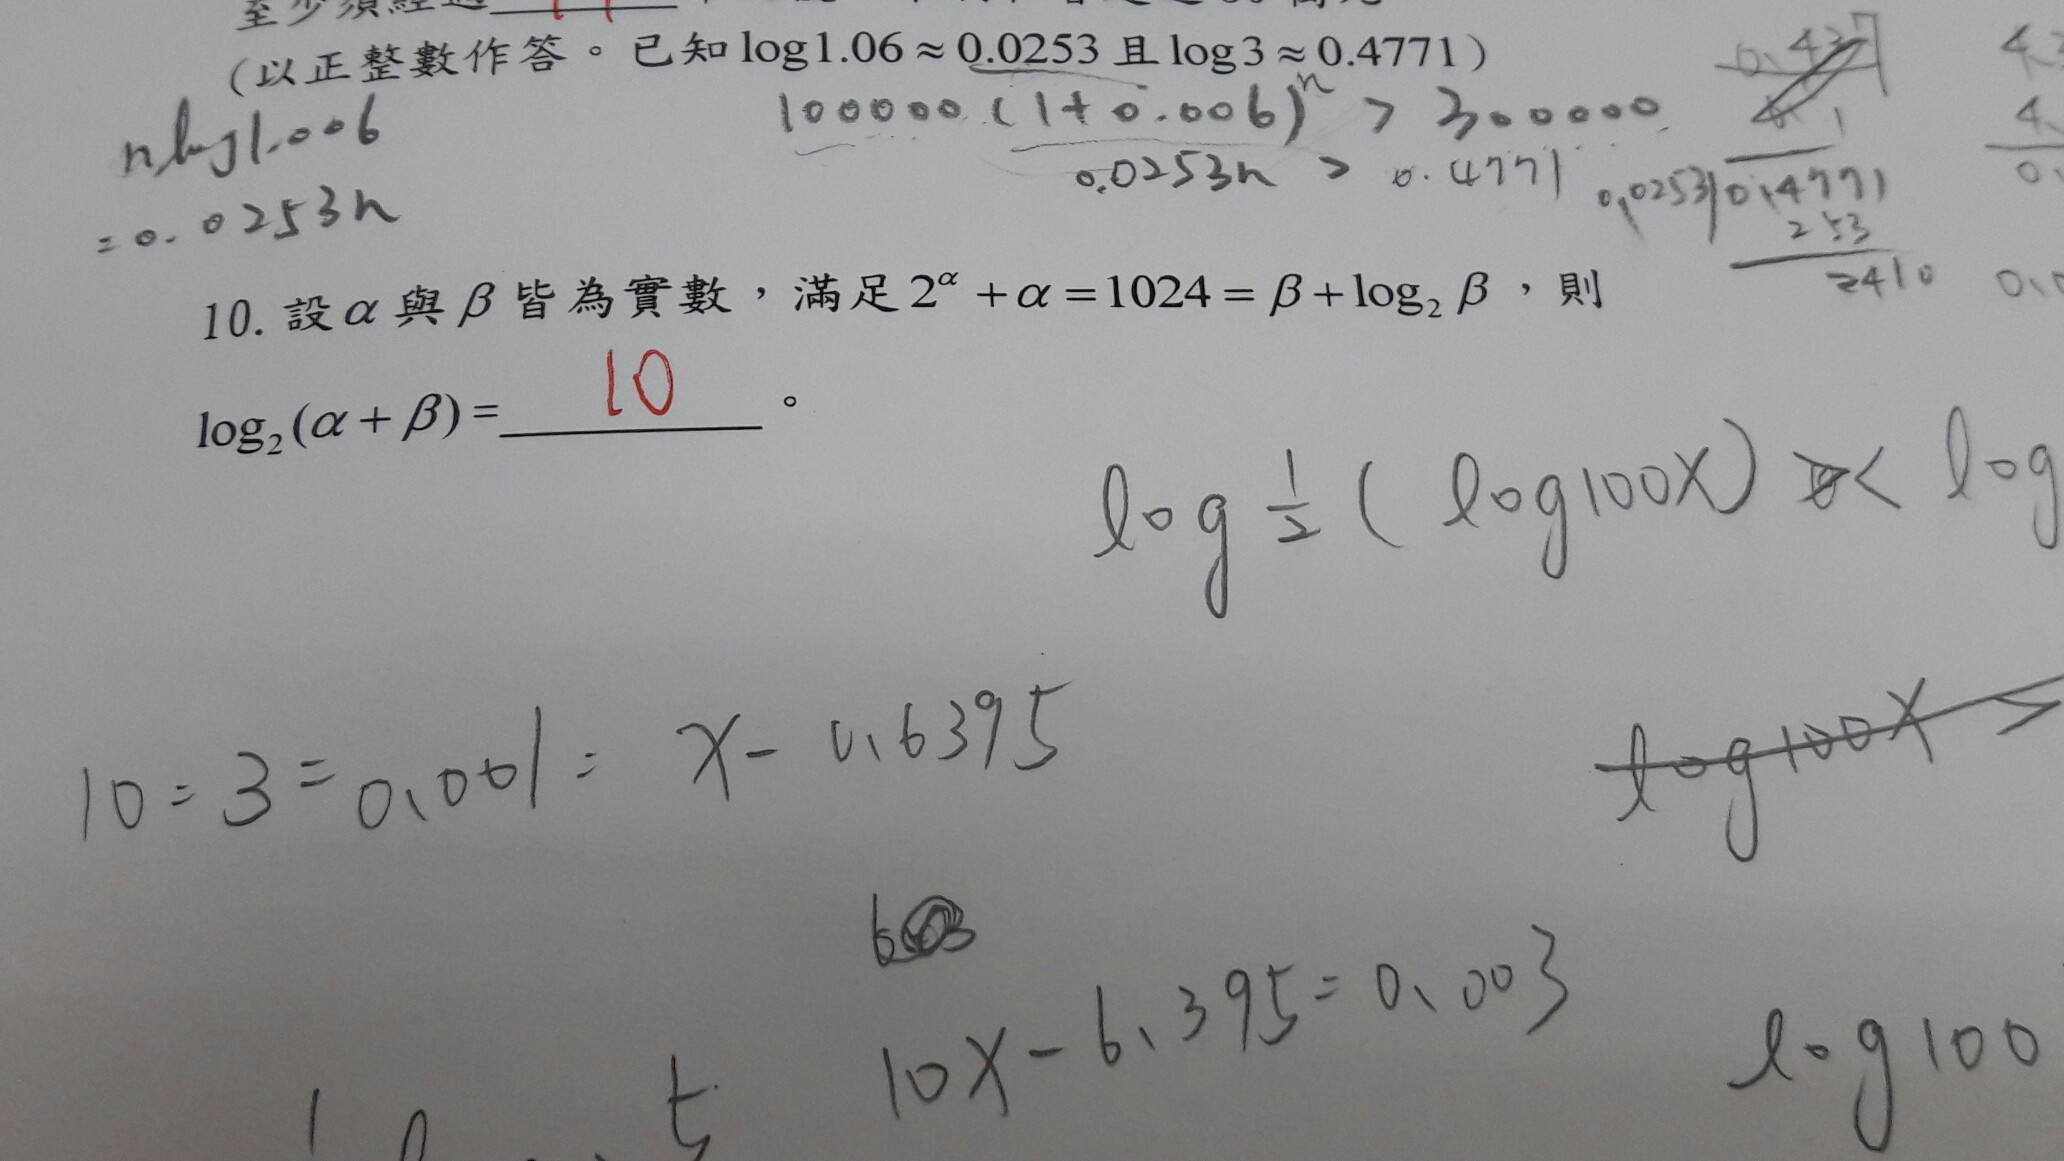 至少須經過
(以正整數作答。已知 log1.06 ≈ 0.0253 且 log3 ≈ 0.4771)
100000 (1+0.006)ⁿ > 300000
nlog1.006
0.0253n > 0.4771
=0.0253n
0.0253 0.4771
253
2410
10. 設 α 與 β 皆為實數，滿足 2^α + α = 1024 = β + log₂ β ，則
log₂(α + β) = 10 。
log ½ ( log100X) < log
10 = 3 = 0.001 = X - 0.6395
log100X
10X - 6.395 = 0.003
log100
5